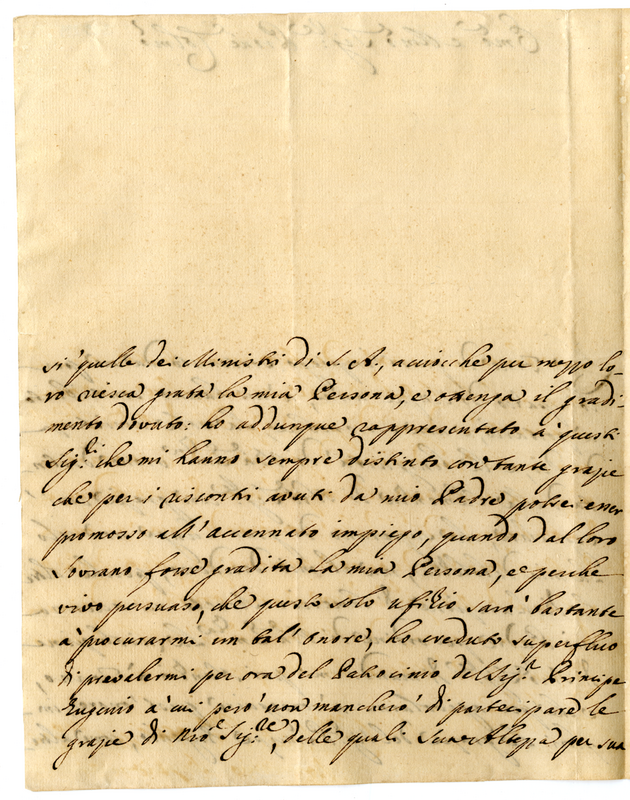 si quelle dei Ministri di S. A., acciocche per mezzo lo-
ro riesca grata la mia Persona, e ottenga il gradi-
mento dovuto: ho addunque rappresentato à questi
Sig.ri che mi hanno sempre distinto con tante grazie
che per i risconti avuti da mio Padre potrei esser
promosso all' accennato impiego, quando dal loro
Sovrano fosse gradita la mia Persona, e perche
vivo persuaso, che questo solo ufizio sarà bastante
à procurarmi un tal' onore, ho creduto superfluo
di prevalermi per ora del Patrocinio del Sig.r Principe
Eugenio à cui però non mancherò di partecipare le
grazie di Sig.re, delle quali Altezza per sua